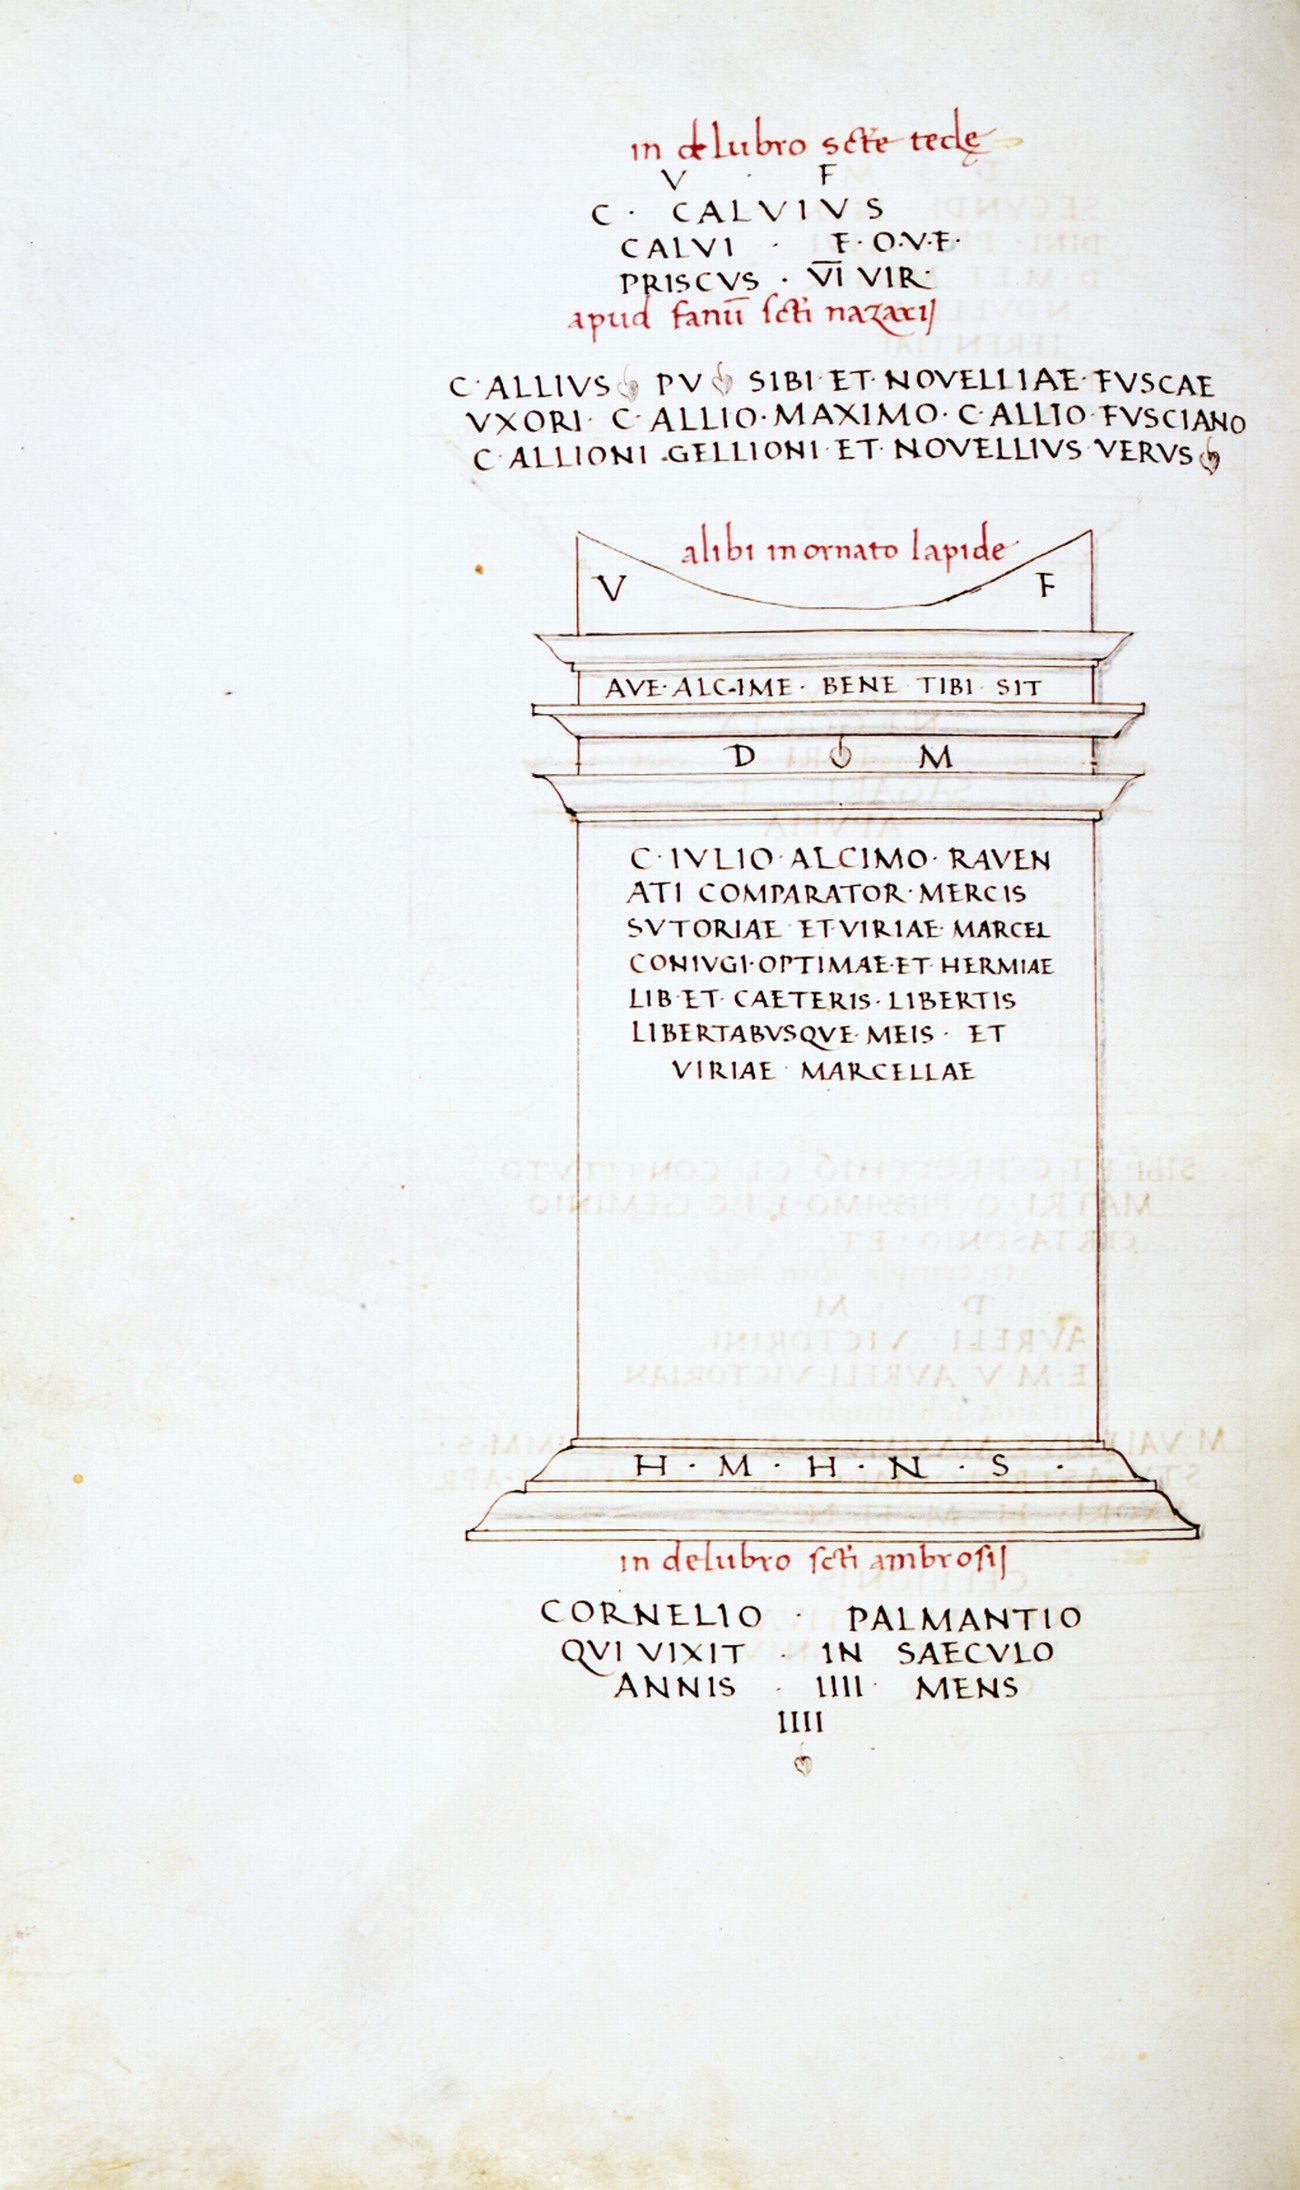 in delubro scte tecle
V · F
C · CALVIVS
CALVI · F · O·V·F·
PRISCVS · VI VIR·
apud fanū scti nazarij
C·ALLIVS PV SIBI·ET·NOVELLIAE·FVSCAE
VXORI· C·ALLIO·MAXIMO·C·ALLIO·FVSCIANO
C·ALLIONI·GELLIONI·ET·NOVELLIVS·VERVS
alibi in ornato lapide
V F
AVE·ALCIME· BENE TIBI SIT
D M
C·IVLIO·ALCIMO·RAVEN
ATI COMPARATOR·MERCIS
SVTORIAE ET·VIRIAE·MARCEL
CONIVGI·OPTIMAE·ET·HERMIAE
LIB·ET·CAETERIS·LIBERTIS
LIBERTABVSQVE·MEIS· ET
VIRIAE·MARCELLAE
H·M·H·N·S·
in delubro scti ambrosij
CORNELIO · PALMANTIO
QVI VIXIT · IN SAECVLO
ANNIS · IIII· MENS
IIII